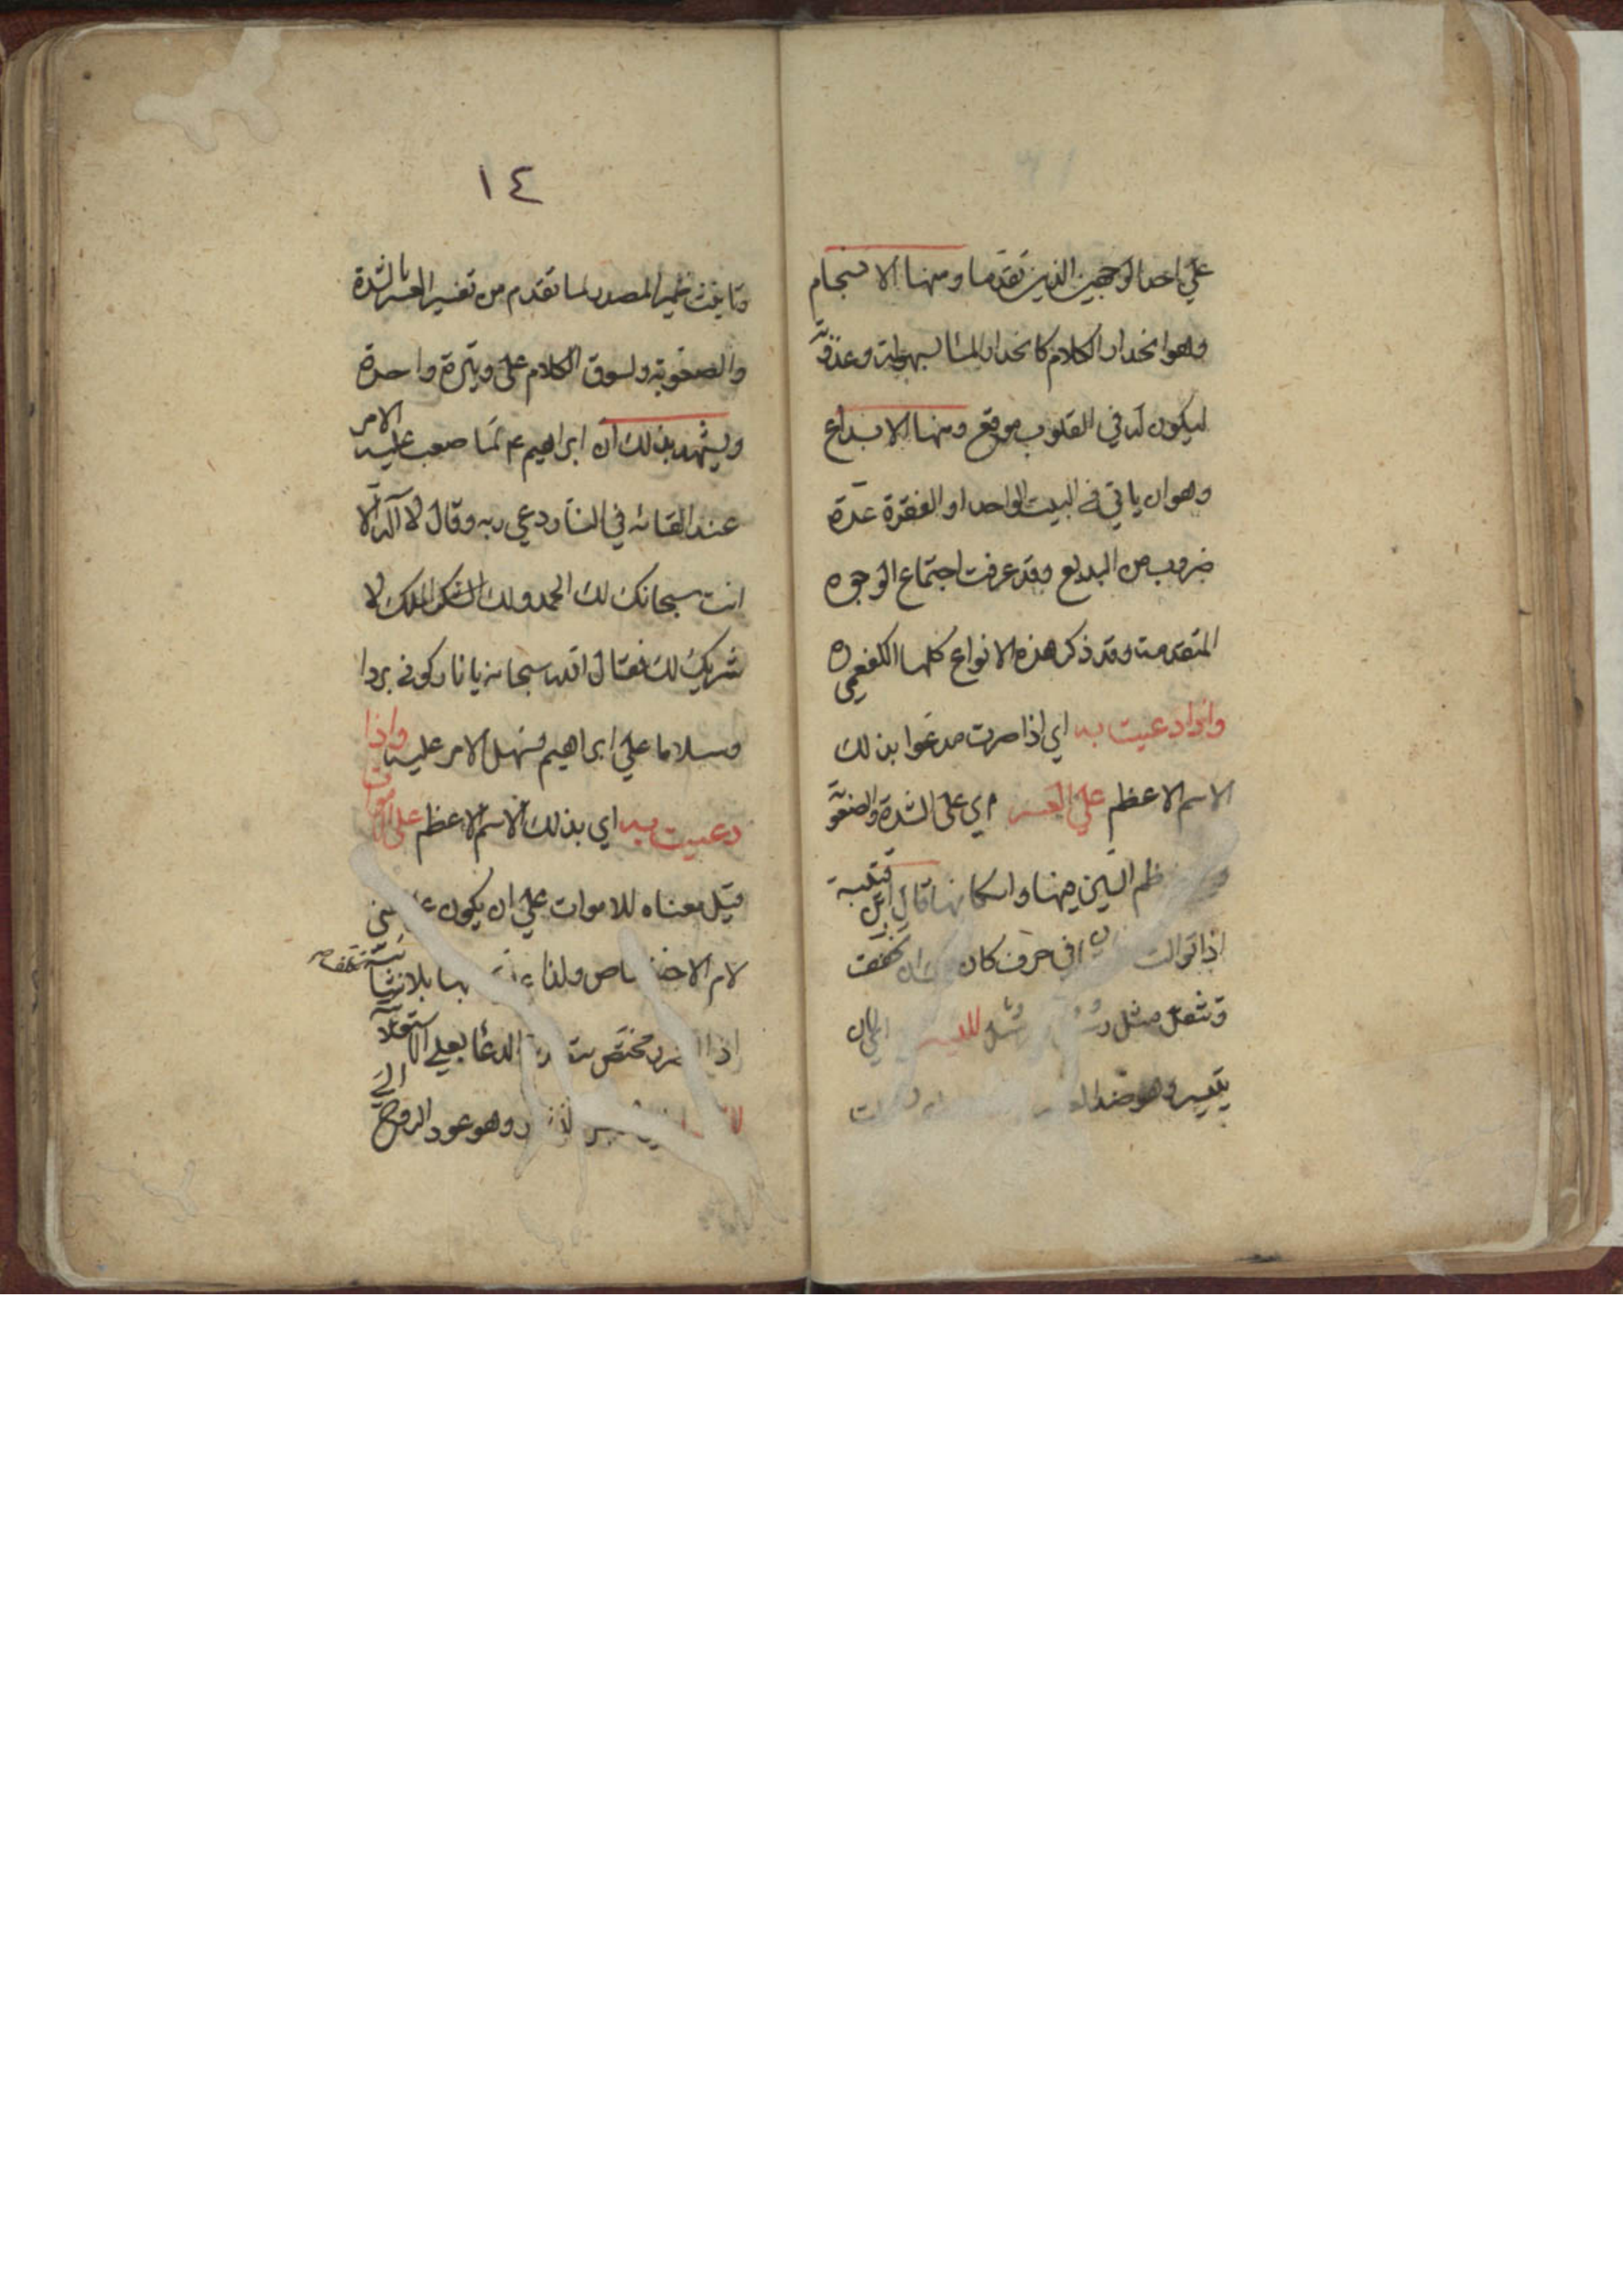 علي احد الوجهين الذين تقدما ومنها الانسجام
وهو انحدار الكلام كانحدار الماء بسهولته وعذوبته
ليكون له في القلوب موقع ومنها الابداع
وهو ان ياتي في البيت الواحد او الفقرة عدة
ضروب من البديع وقد عرفت اجتماع الوجوه
المتقدمة وقد ذكر هذه الانواع كلها الكفعمي ره
واذا دعيت به اي اذا صرت مدعوا بذلك
الاسم الاعظم علي العسر اي على الشدة والصعوبة
السين منها واسكانها قال ابن قتيبة
اذا توالت في حرف كان لك ان تخفف
وتثقل مثل رسل لليسر اي لان
يتيسر وهو ضد
١٤
وتانيث ضمير المصدر لما تقدم من تفسير العسر بالشدة
والصعوبة ولسوق الكلام على وتيرة واحدة
ويشهد بذلك ان ابراهيم ع لما صعب عليه الامر
عند القائه في النار دعي ربه وقال لا آله الا
انت سبحانك لك الحمد ولك الشكر الملك لا
شريك لك فقال الله سبحانه يا نار كوني بردا
وسلاما علي ابراهيم فسهل الامر عليه واذا
دعيت به اي بذلك الاسم الاعظم على الاموات
قيل معناه للاموات علي ان يكون على بمعنى
لام الاختصاص ولذا
مختص الدعا بعلي
وهو عود الروح الي